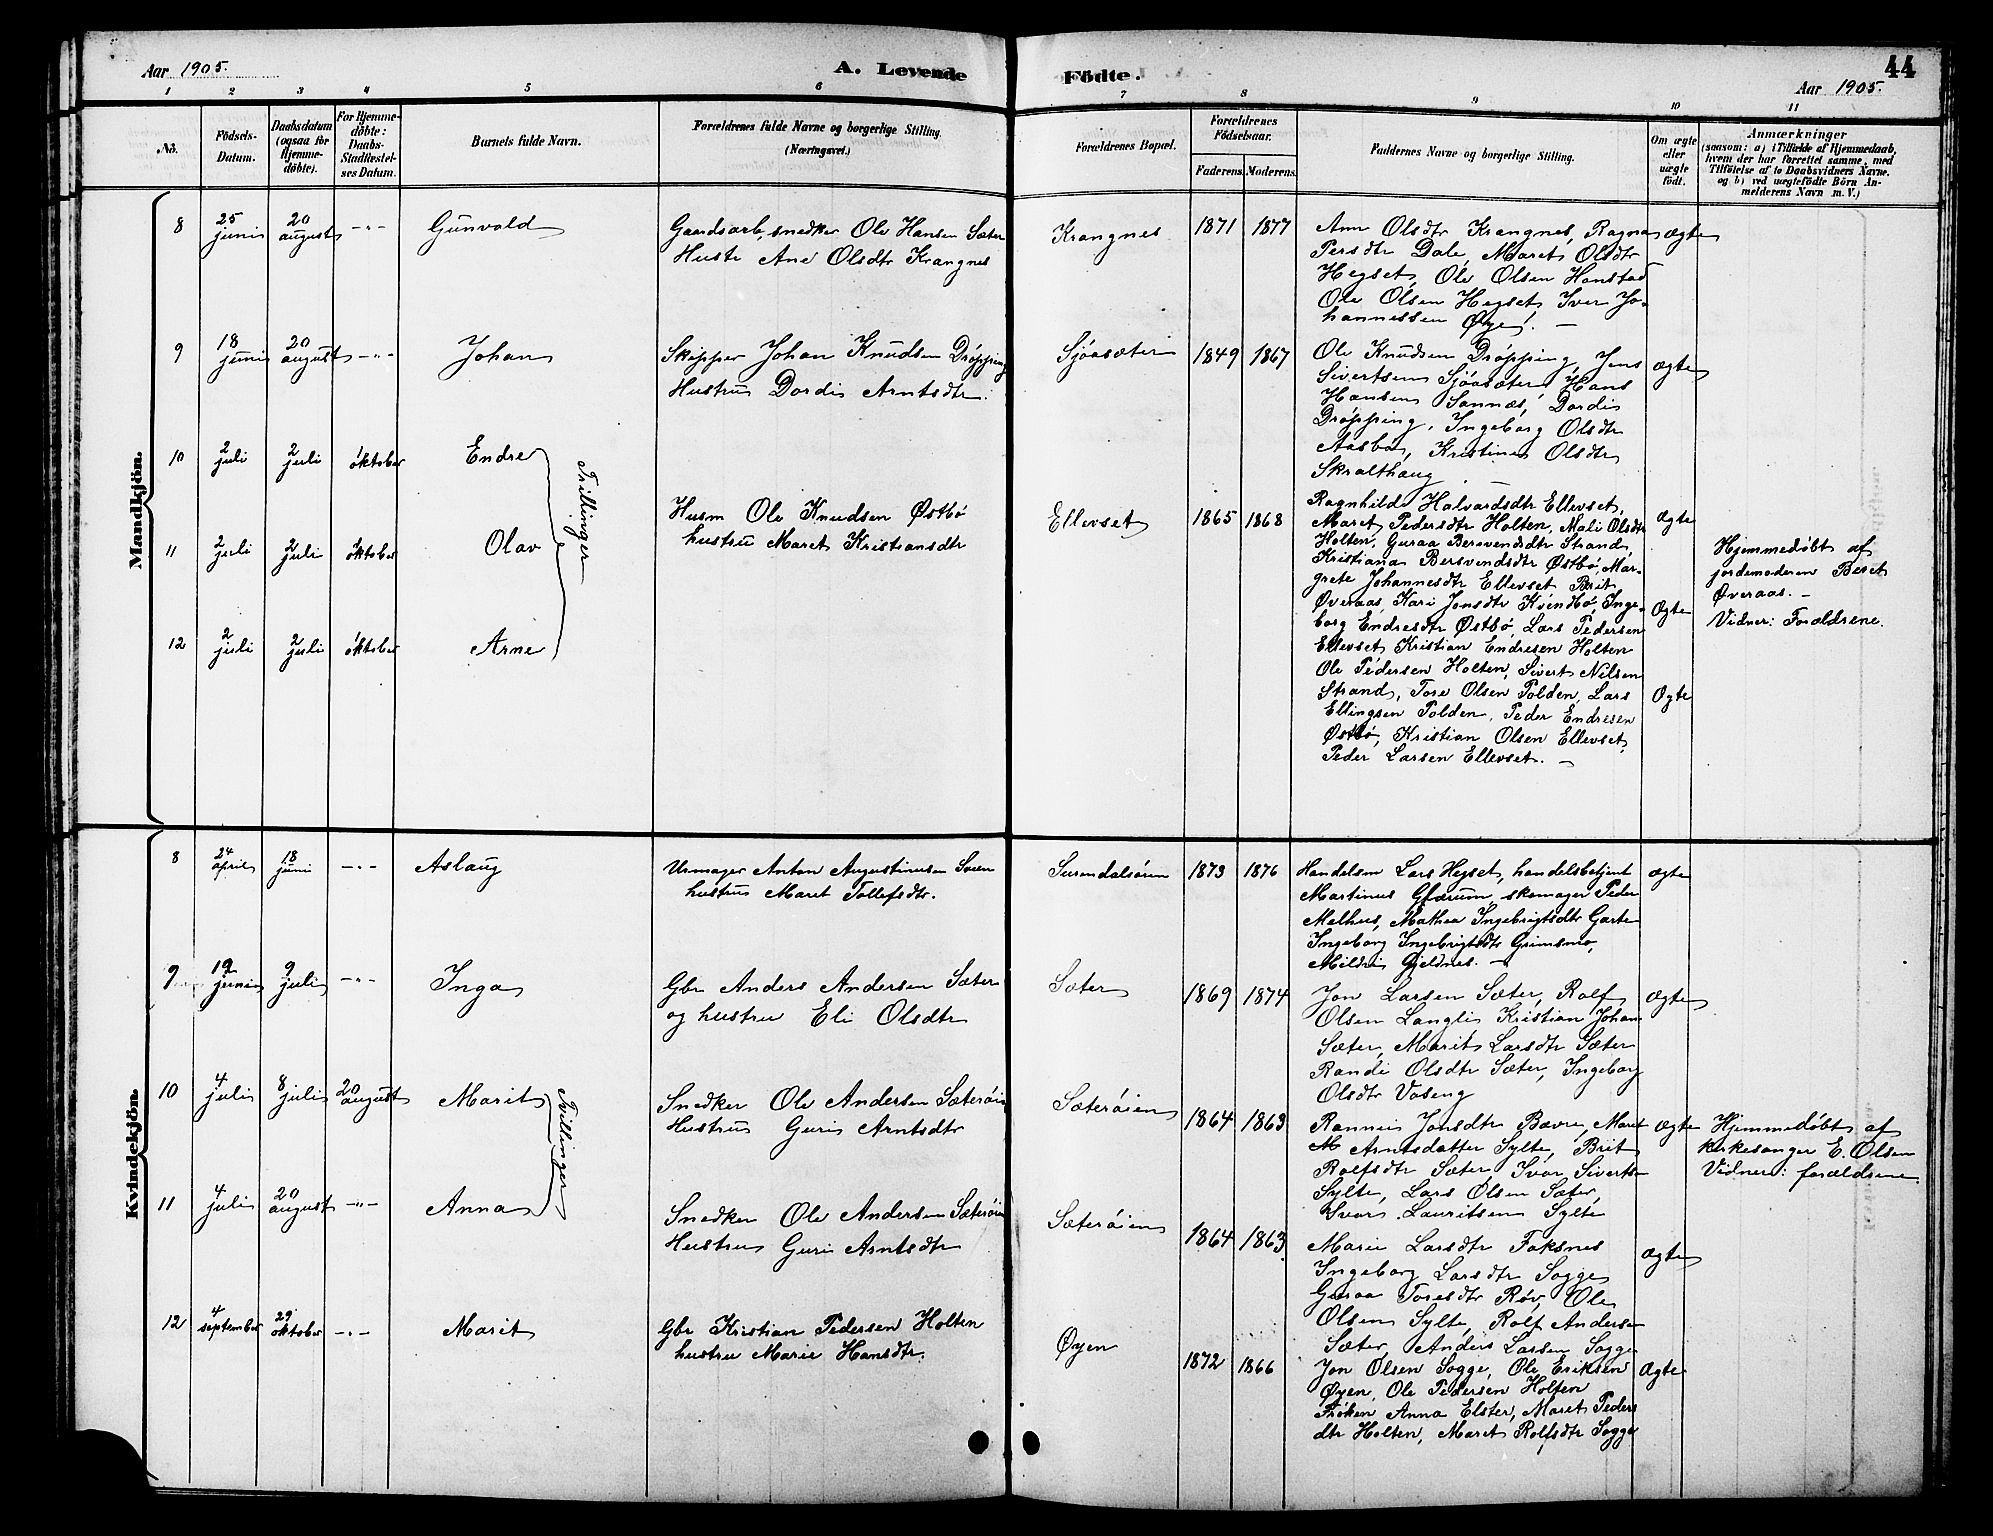 Aar 1905.
A. Levende
Födte.
44
Aar 1905.
1 2 3 4 5 6 7 8 9 10 11
No.
Födsels-
Datum.
Daabsdatum
(ogsaa for
Hjemme-
döbte).
For Hjemme-
döbte:
Daabs-
Stadfæstel-
ses Datum.
Barnets fulde Navn.
Forældrenes fulde Navne og borgerlige Stilling.
(Næringsvei.)
Forældrenes Bopæl.
Forældrenes
Födselsaar.
Faderens.
Moderens.
Faddernes Navne og borgerlige Stilling.
Om ægte
eller
uægte
födt.
Anmærkninger
(saasom: a) i Tilfælde af Hjemmedaab,
hvem der har forrettet samme, med
Tilföielse af to Daabsvidners Navne.
og b) ved uægtefödte Börn An-
melderens Navn m. V.)
Mandkjön.
8
25
juni
20
august
-"-
Gunvald
Gaardsarb, snedker Ole Hansen Sæter
Hustr Ane Olsdtr Krangnes
Krangnes
1871
1877
Ann Olsdtr Krangnes, Ragna
Persdtr Dale, Maret Olsdtr
Hegset, Ole Olsen Hanstad
Ole Olsen Hegset, Iver Jo-
hannessen Øye. —
ægte
9
18
juni
20
august
-"-
Johan
Skipper Johan Knudsen Drøpping
Hustru Dordis Arntsdtr.
Sjøasæter
1849
1867
Ole Knudsen Drøpping, Jens
Sivertsen Sjøasæter, Hans
Hansen Sannæs, Dordis
Drøpping, Ingeborg Olsdtr
Aasbø, Kristine Olsdtr
Skralthaug
ægte
10
2
juli
2
juli
1
oktober
Endre
11
2
juli
2
juli
1
oktober
Olav
12
2
juli
2
juli
1
oktober
Arne
Trillinger
Husm Ole Knudsen Østbø
hustru Maret Kristiansdtr
Ellevset
1865
1868
Ragnhilde Halvardsdtr Ellevset,
Maret Pedersdtr Holten, Mali Olsdtr
Holten, Guraa Bersvendsdtr Strand,
Kristiana Bersvendsdtr Østbø, Mar-
grete Johannesdtr Ellevset, Brit
Øveraas, Kari Jonsdtr Kvendbø, Inge-
borg Endresdtr Østbø, Lars Pedersen
Ellevset, Kristian Endresen Holten
Ole Pedersen Holten, Sivert Nilsen
Strand, Tore Olsen Polden, Lars
Ellingsen Polden, Peder Endresen
Østbø, Kristian Olsen Ellevset,
Peder Larsen Ellevset. —
Ægte
Ægte
Ægte
Hjemmedøbt af
jordemoderen Beret
Øveraas. —
Vidner: Forældrene.
Kvindekjön.
8
24
april
18
juni
-"-
Aslaug
Urmager Anton Augustinusen Sven
hustru Maret Tollefsdtr.
Surendalsøren
1873
1876
Handelsm Lars Hegset, handelsbetjent
Martinus Glærum, skomager Peder
Melhus, Mathea Ingebrigtsdtr Garte
Ingeborg Ingebrigtsdtr Grimsmo,
Mildri Gjeldnes. —
ægte
9
19
juni
9
juli
-"-
Inga
Gbr Anders Andersen Sæter
og hustru Eli Olsdtr
Sæter
1869
1874
Jon Larsen Sæter, Rolf
Olsen Langli, Kristian Johan
Sæter, Marit Larsdtr Sæter
Randi Olsdtr Sæter, Ingeborg
Olsdtr Vaseng
Ægte
10
4
juli
8
juli
20
august
Marit
Tvillinger
Snedker Ole Andersen Sæterøien
Hustru Guri Arntsdtr
Sæterøien
1864
1863
Rannei Jonsdtr Bævre, Maret
M Arntsdatter Sylte, Brit
Rolfsdtr Sæter, Ivar Siverts
Sylte, Lars Olsen Sæter,
Ivar Lauritsen Sylte
Ægte
Hjemmedøbt af
kirkesanger E. Olsen
Vidner: forældrene.
11
4
juli
20
august
-"-
Anna
Snedker Ole Andersen Sæterøien
Hustru Guri Arntsdtr
Sæterøien
1864
1863
Marie Larsdtr Foksnes
Ingeborg Larsdtr Sogge
Guraa Toresdtr Røv, Ole
Olsen Sylte, Rolf Andersen
Sæter, Anders Larsen Sogge
Ægte
12
4
september
29
oktober
-"-
Marit
Gbr Kristian Pedersen Holten
hustru Marie Hansdtr.
Øyen
1872
1866
Jon Olsen Sogge, Ole Eriksen
Øyen, Ole Pedersen Holten
Frøken Anna Elster, Maret Peders
dtr Holten, Maret Rolfsdtr Sogge
Ægte